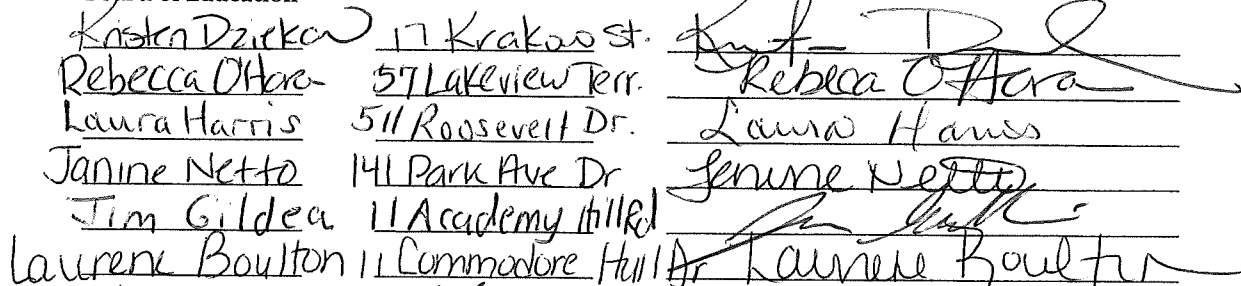 Kristen Dziekan 17 Krakow St. 
Rebecca O'Hara 57 Lakeview Terr. Rebecca O'Hara
Laura Harris 511 Roosevelt Dr. Laura Harris
Janine Netto 141 Park Ave Dr Janine Netto
Jim Gildea 11 Academy Hill Rd
Laurene Boulton 11 Commodore Hull Dr Laurene Boulton